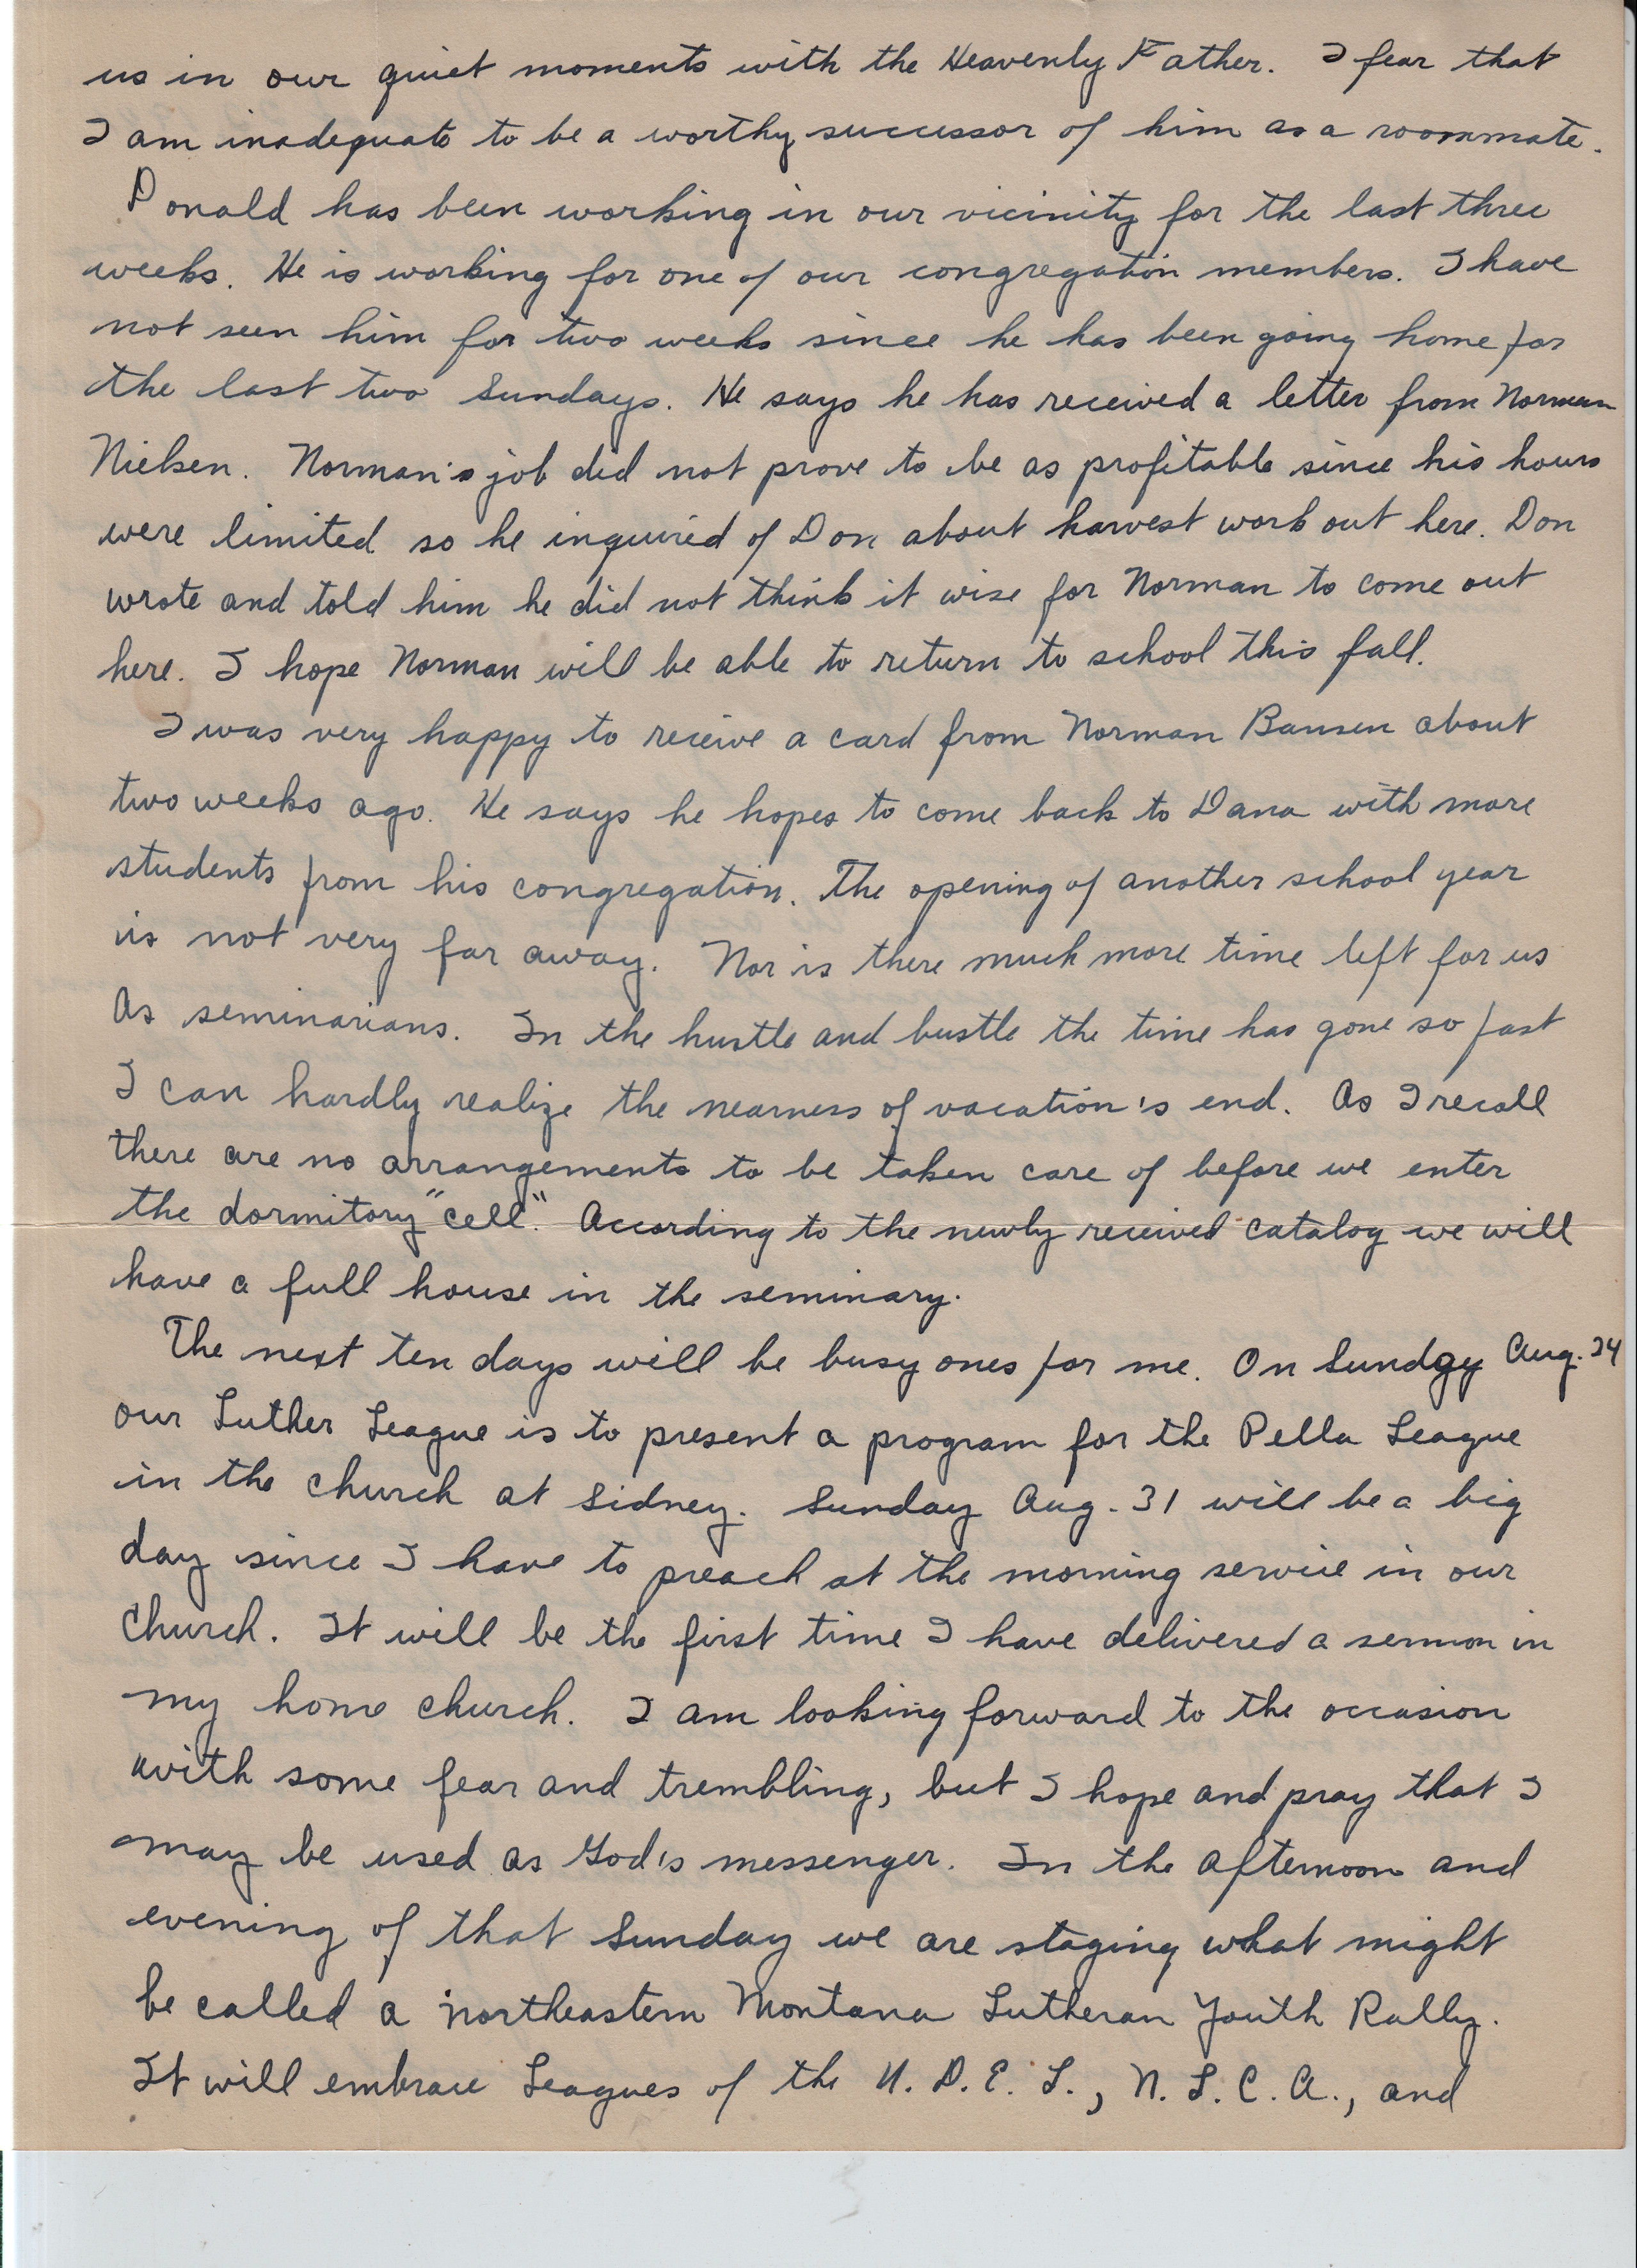 us in our quiet moments with the Heavenly Father. I fear that
I am inadequate to be a worthy successor of him as a roommate.
Donald has been working in our vicinity for the last three
weeks. He is working for one of our congregation members. I have
not seen him for two weeks since he has been going home for
the last two Sundays. He says he has received a letter from Norman
Nielsen. Norman's job did not prove to be as profitable since his hours
were limited so he inquired of Don about harvest work out here. Don
wrote and told him he did not think it wise for Norman to come out
here. I hope Norman will be able to return to school this fall.
I was very happy to receive a card from Norman Bansen about
two weeks ago. He says he hopes to come back to Dana with more
students from his congregation. The opening of another school year
is not very far away. Nor is there much more time left for us
as seminarians. In the hustle and bustle the time has gone so fast
I can hardly realize the nearness of vacation's end. As I recall
there are no arrangements to be taken care of before we enter
the dormitory "cell". According to the newly received catalog we will
have a full house in the seminary.
The next ten days will be busy ones for me. On Sunday Aug. 24
our Luther League is to present a program for the Pella League
in the church at Sidney. Sunday Aug. 31 will be a big
day since I have to preach at the morning service in our
church. It will be the first time I have delivered a sermon in
my home church. I am looking forward to the occasion
with some fear and trembling, but I hope and pray that I
may be used as God's messenger. In the afternoon and
evening of that Sunday we are staging what might
be called a northeastern Montana Lutheran Youth Rally.
It will embrace Leagues of the U. D. E. L., N. L. C. A., and